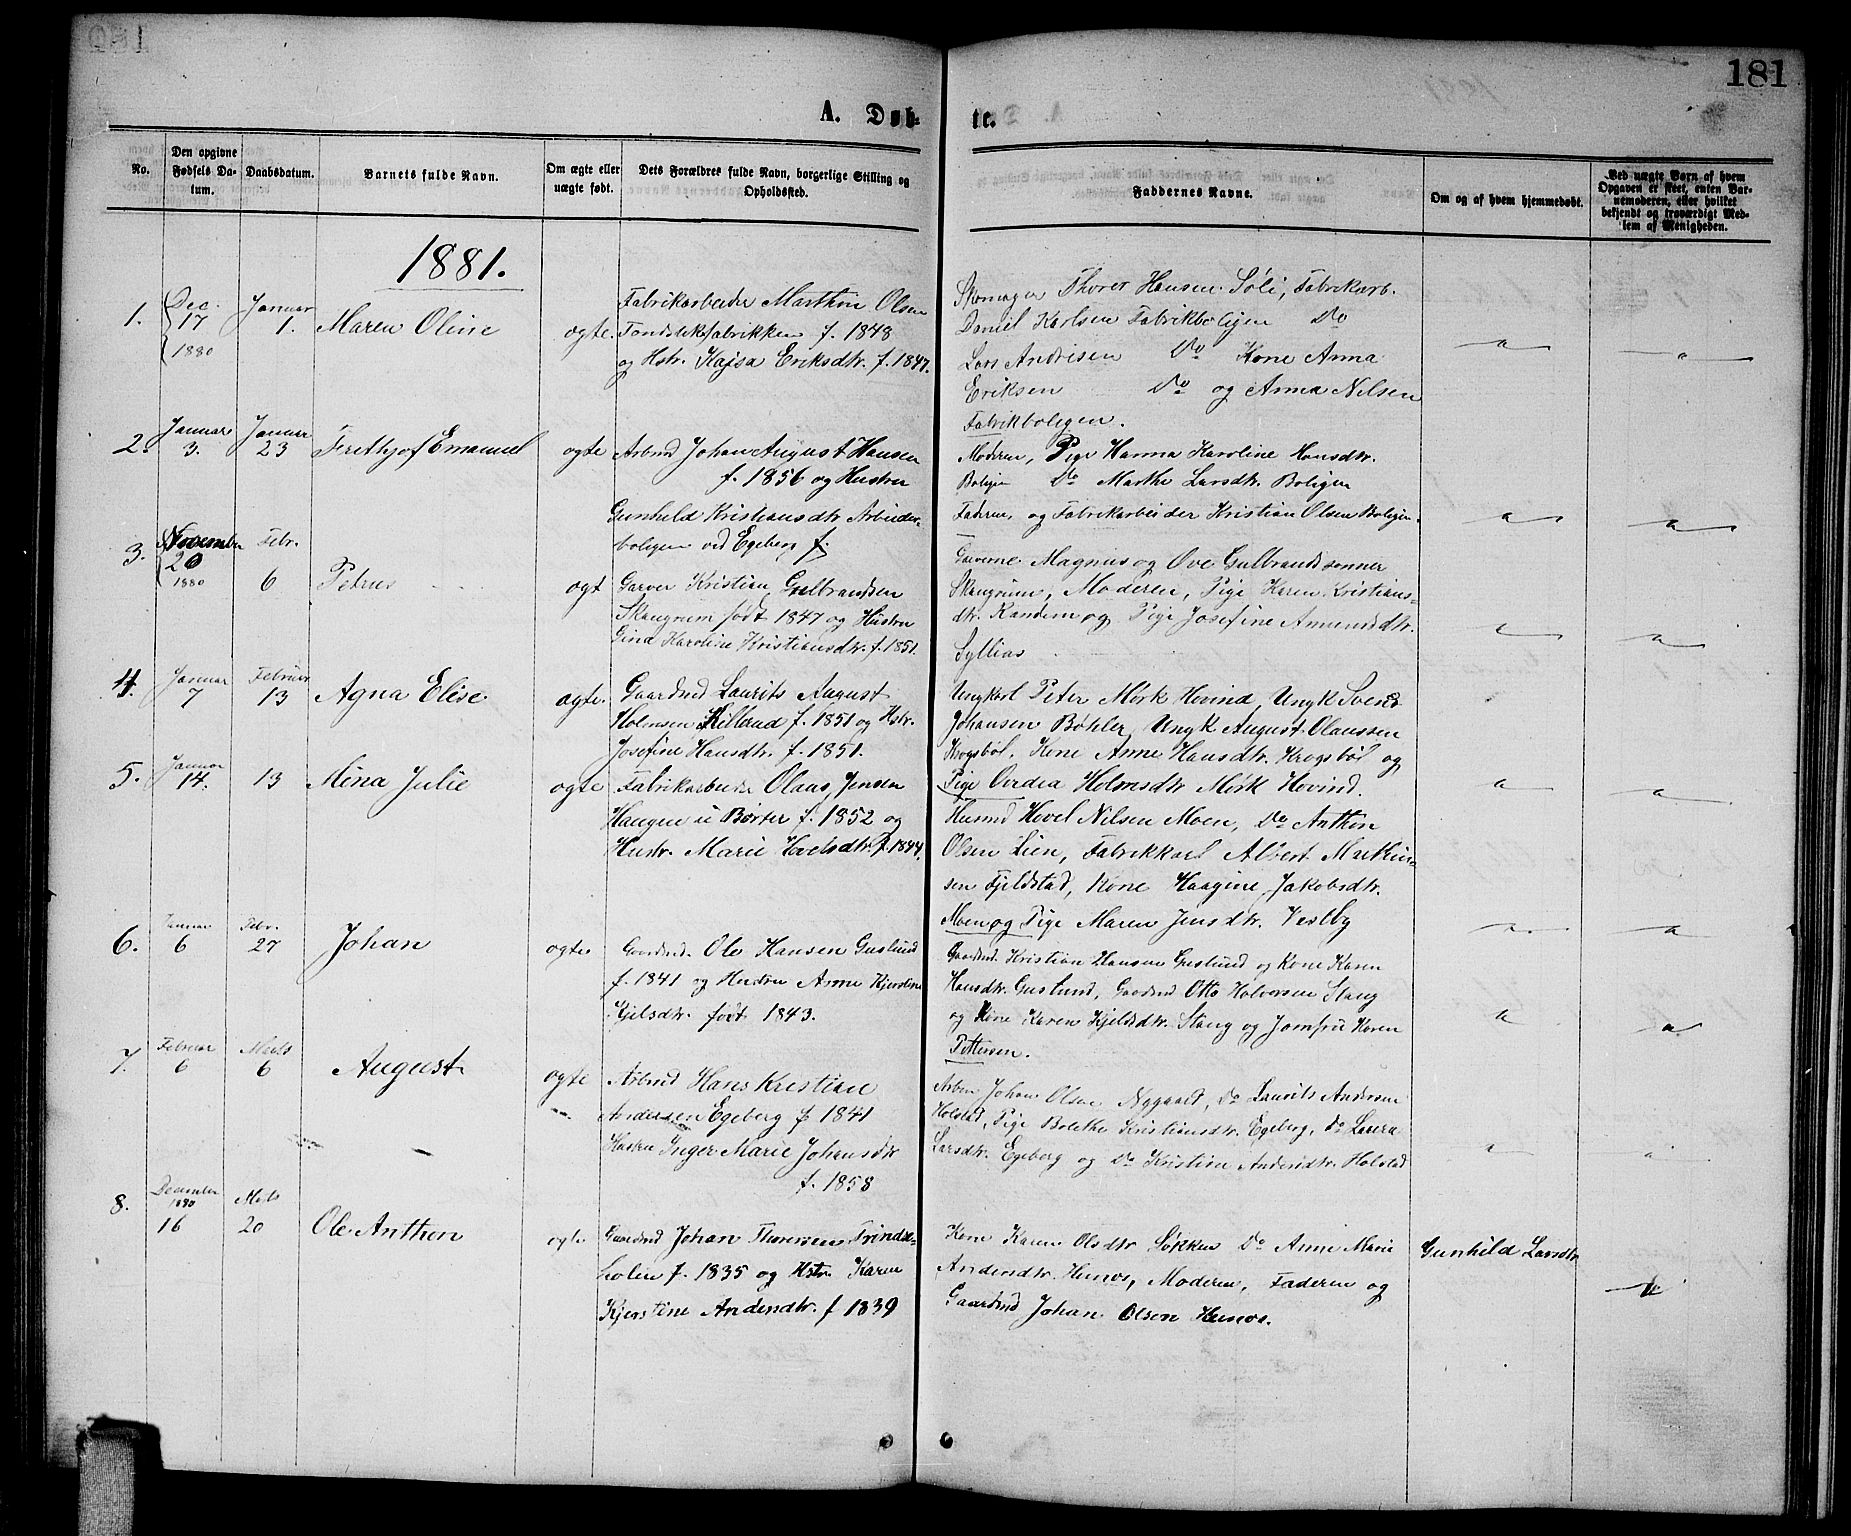 181
A. Døb-
te.
No.
Den opgivne Fødsels Datum.
Daabsdatum.
Barnets fulde Navn.
Om ægte eller uægte født.
Dets Forældres fulde Navn, borgerlige Stilling og Opholdssted.
Faddernes Navne.
Om og af hvem hjemmedøbt.
Ved uægte Børn af hvem Opgaven er skeet, enten Barnemoderen, eller hvilket bekjendt og troværdigt Medlem af Menigheden.
1881.
1.
Dec. 17 1880
Januar 1.
Maren Oline
ægte.
Fabrikarbeider Marthin Olsen
Tændstikfabrikken f. 1848
og Hstr. Kajsa Eriksdtr. f. 1847.
Skomager Thorer Hansen Søli, Fabrikarb.
Daniel Karlsen Fabrikboligen Do
Lars Andrisen Do Kone Anna
Eriksen Do og Anna Nilsen
Fabrikboligen.
2.
Januar 3.
Januar 23
Ferithjof Emanuel
ægte
Arbmd Johan August Hansen
f. 1856 og Hustru
Gunhild Kristiansdtr Arbeider-
boligen ved Egeberg f.
Moderen, Pige Hanna Karoline Hansdtr.
Boligen Do Marthe Larsdtr. Boligen
Faderen, og Fabrikarbeider Kristian Olsen Boligen.
3.
November 20 1880
Febr. 6
Petrus
ægt
Garver Kristian Gulbrandsen
Skaugrum født 1847 og Hustru
Gina Karoline Kristiansdtr. f. 1851.
Garverne Magnus og Ove Gulbrandsønner
Skaugrum, Moderen, Pige Karen Kristians-
dtr. Randem og Pige Josefine Amundsdtr.
Syllias
4.
Januar 7
Februar 13
Agna Elise
ægte.
Gaardmd Laurits August
Holmsen Killerud f. 1851 og Hstr.
Josefine Hansdtr. f. 1851.
Ungkarl Peter Mørk Hovind, Ungk Svend
Johansen Bøhler, Ungk August Olaussen
Krogsbøl, Kone Anne Hansdtr. Krogsbøl og
Pige Ovidia Holmsdtr Mørk Hovind.
5.
Januar 14.
13
Mina Julie
ægte
Fabrikarbeider Olaus Jensen
Haugen u Børter f. 1852 og
Hustr. Marie Hovelsdtr f. 1844.
Husmd Hovel Nilsen Moen, Do Anthon
Olsen Lien, Fabrikkarl Albert Mathis-
sen Fjeldstad, Kone Haagine Jakobsdtr.
Moen og Pige Maren Jensdtr. Vestby
6.
Januar 6
Febr. 27
Johan
ægte
Gaardmd. Ole Hansen Guslund
f. 1841 og Hustru Anne Kjerstine
Kjelsdtr. født 1843.
Gaardmd. Kristian Hansen Guslund og Kone Karen
Hansdtr. Guslund, Gaardmd Otto Halvorsen Stang
og Kone Karen Kjelsdtr. Stang og Jomfru Karen
Pettersen.
7.
Februar 6
Marts 6
August
ægte
Arbmd Hans Kristian
Andersen Egeberg f 1841
Hustru Inger Marie Johansdtr
f. 1858
Arbm Johan Olsen Nygaard, Do Laurits Andersen
Holstad, Pige Bolethe Kristiansdtr. Egeberg, Do Laura
Larsdtr. Egeberg og Do Kristine Andersdtr. Holstad
8.
December 1880 16
Marts 20
Ole Anthon
ægte
Gaardmd Johan Thoresen Trindse-
holen f. 1835 og Hstr. Karen
Kjerstine Andersdtr. f 1839
Kone Karen Olsdtr Søkken Do Anne Marie
Andersdtr. Humos, Moderen, Faderen og
Gaardmd Johan Olsen Humos.
Gunhild Larsdtr